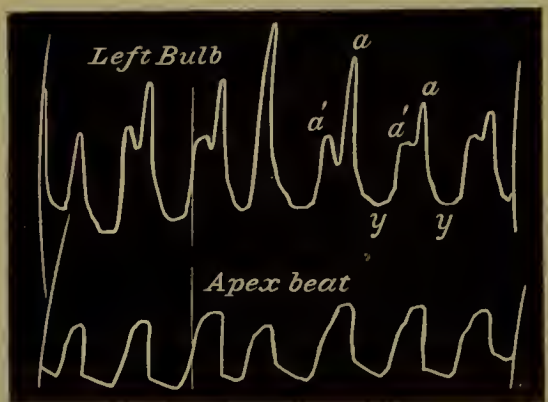 Left Bulb
a
a
a'
a'
y
y
Apex beat